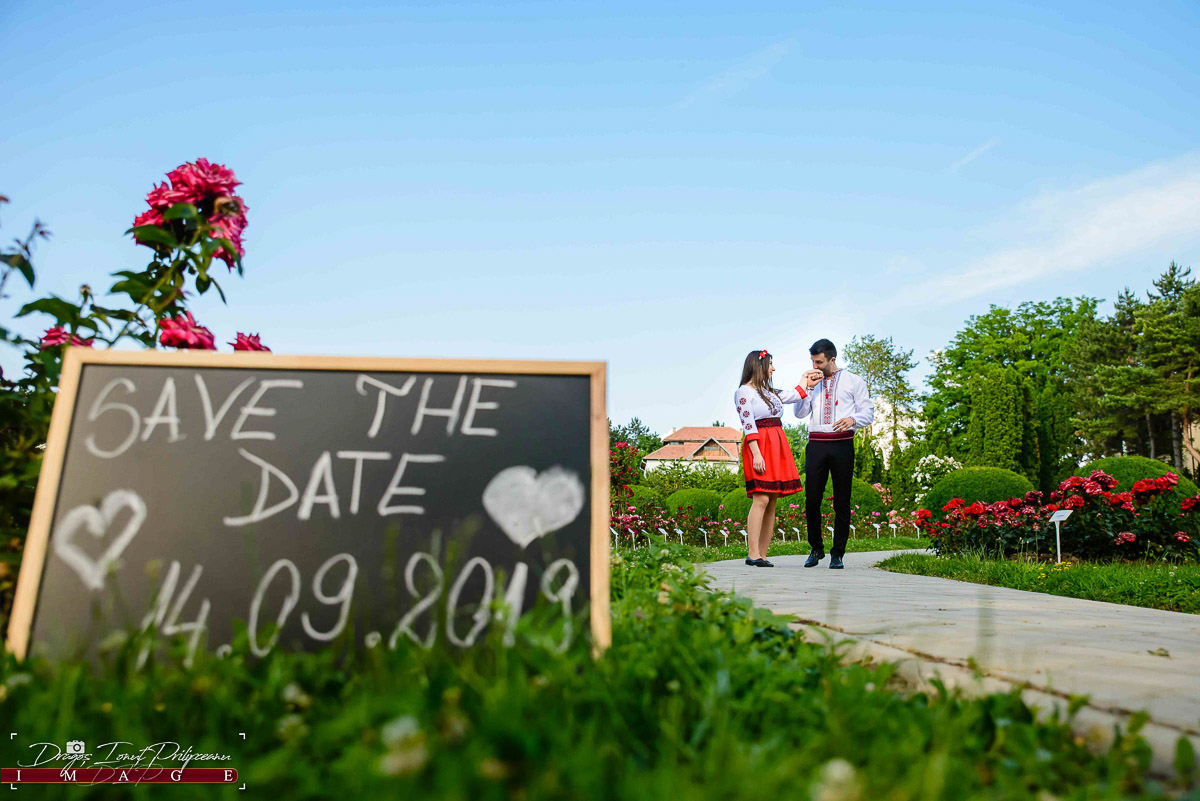 SAVE THE
DATE
14.09.2019
Dragoș Ionuț Prilipceanu
IMAGE